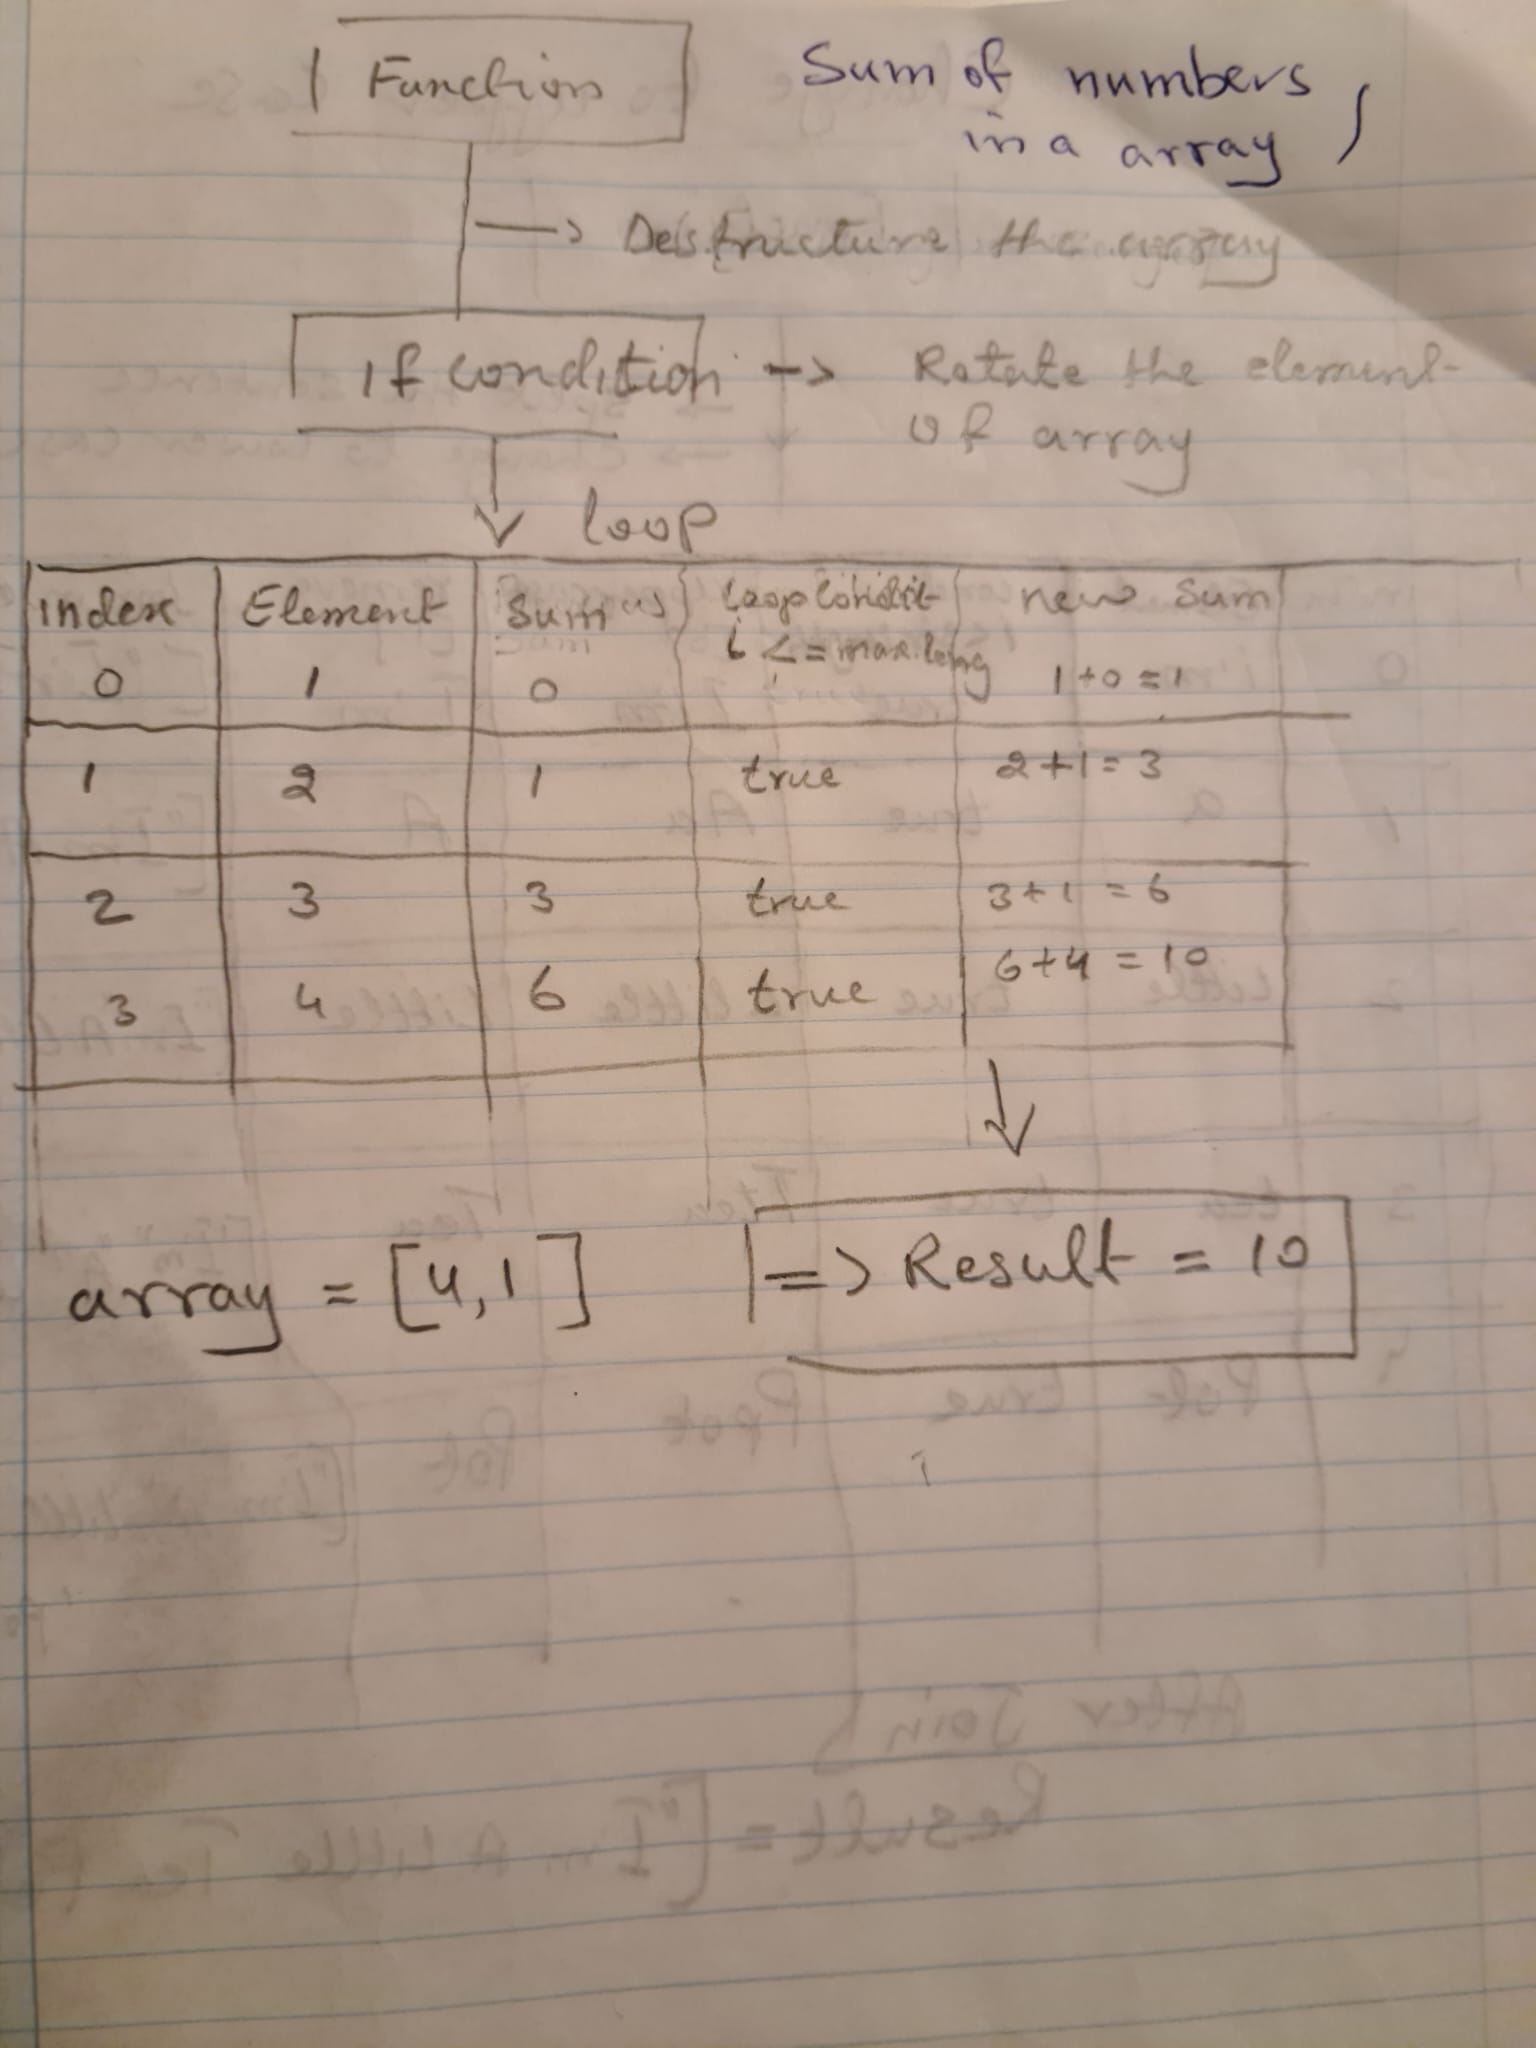 Function
Sum of numbers
in a array
-> Destructure the array
if condition -> Rotate the element
of array
loop
index Element Sum Loop Condit new Sum
i <= max.leng
0 1 0 1+0=1
1 2 1 true 2+1=3
2 3 3 true 3+1=6
3 4 6 true 6+4=10
array = [4,1] => Result = 10